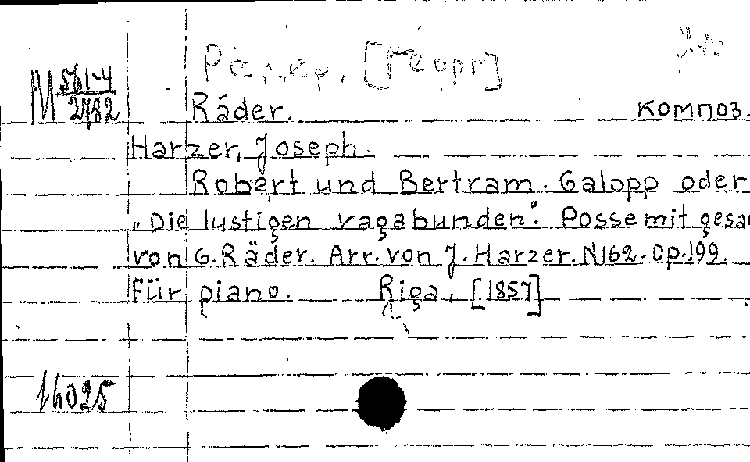 [Георг]
M 561-4
2782
Räder. композ.
Harzer, Joseph.
Robert und Bertram. Galopp oder
„Die lustigen vagabunden". Posse mit gesan
von G. Räder. Arr. von J. Harzer. N162. Op. 199.
Für piano. Riga, [1857]
16025